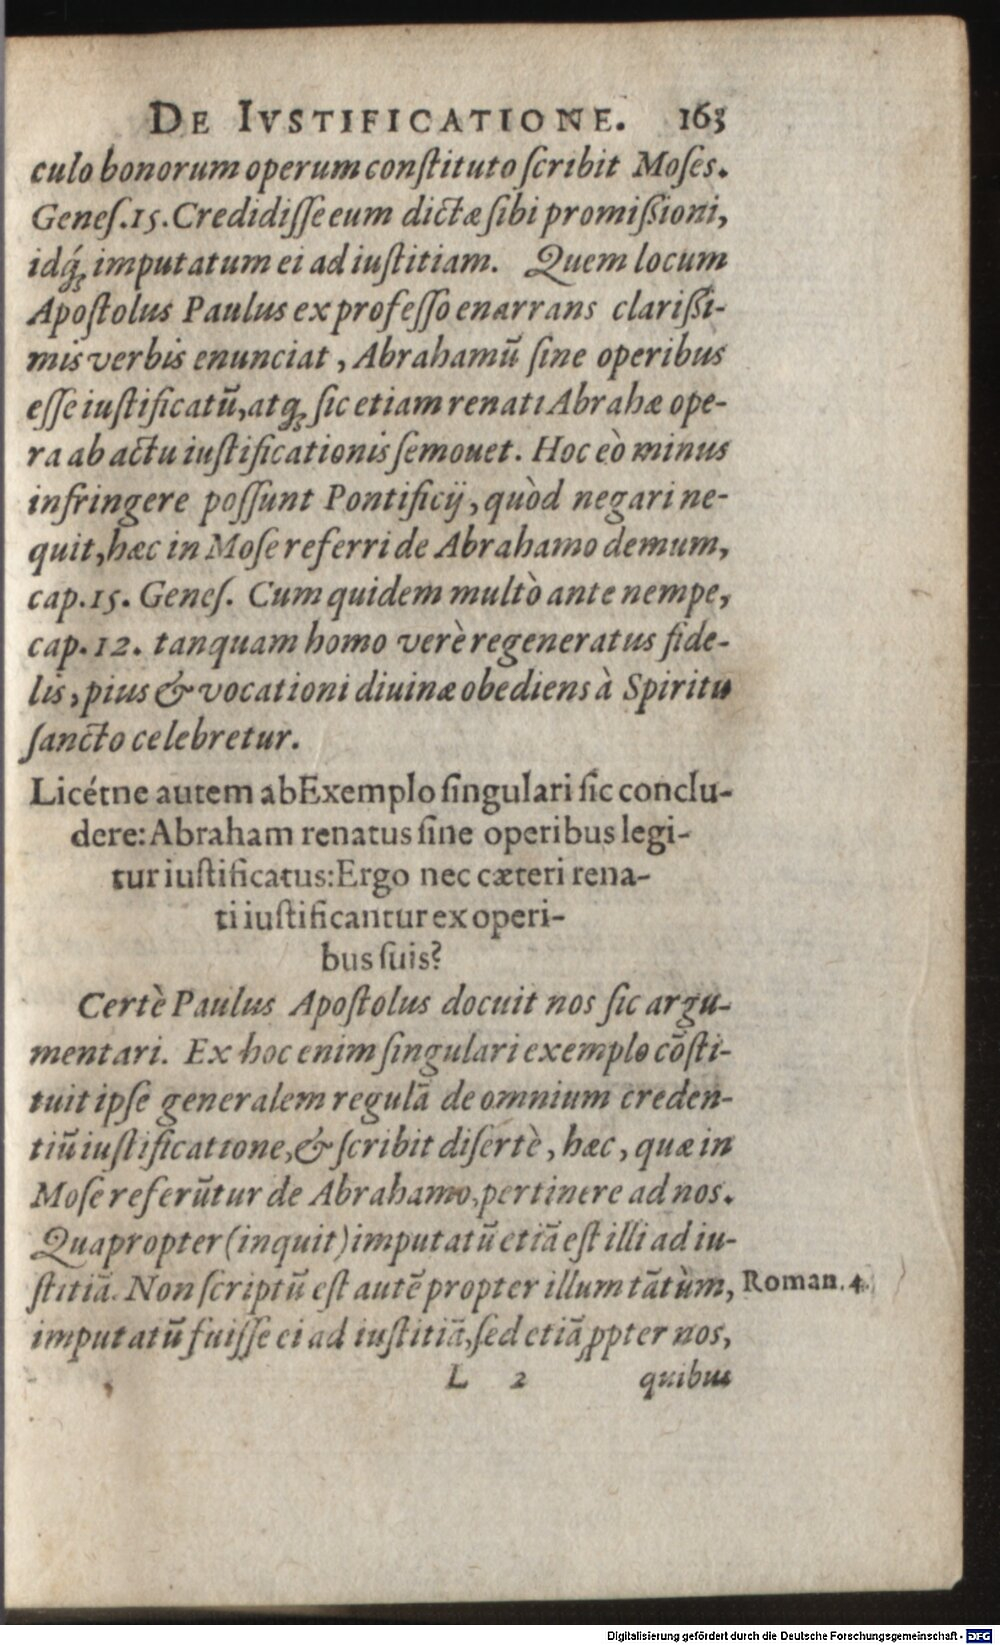 DE IVSTIFICATIONE. 163
culo bonorum operum constituto scribit Moses.
Genes.15. Credidisse eum dictæ sibi promißioni,
idq́; imputatum ei ad iustitiam. Quem locum
Apostolus Paulus ex professo enarrans clarißi-
mis verbis enunciat, Abrahamū sine operibus
esse iustificatū, atq; sic etiam renati Abrahæ ope-
ra ab actu iustificationis semouet. Hoc eò minus
infringere possunt Pontificij, quòd negari ne-
quit, hæc in Mose referri de Abrahamo demum,
cap.15. Genes. Cum quidem multò ante nempe,
cap.12. tanquam homo verè regeneratus fide-
lis, pius & vocationi diuinæ obediens à Spiritu
sancto celebretur.
Licétne autem ab Exemplo singulari sic conclu-
dere: Abraham renatus sine operibus legi-
tur iustificatus: Ergo nec cæteri rena-
ti iustificantur ex operi-
bus suis?
Certè Paulus Apostolus docuit nos sic argu-
mentari. Ex hoc enim singulari exemplo cōsti-
tuit ipse generalem regulā de omnium creden-
tiū iustificatione, & scribit disertè, hæc, quæ in
Mose referūtur de Abrahamo, pertinere ad nos.
Quapropter (inquit) imputatū etiā est illi ad iu-
stitiā. Non scriptū est autē propter illum tātùm, Roman.4.
imputatū fuisse ei ad iustitiā, sed etiā ꝓpter nos,
L 2 quibus
Digitalisierung gefördert durch die Deutsche Forschungsgemeinschaft - DFG